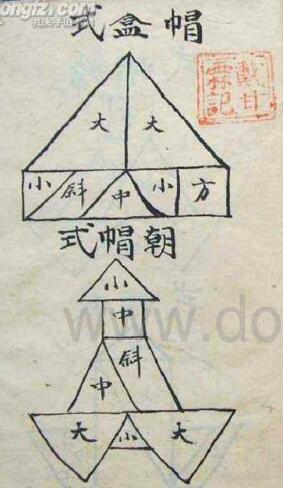 帽盒式
戴甘
霖記
大 大
小 斜 中 小 方
朝帽式
小
中
斜
中
大 小 大
www.do